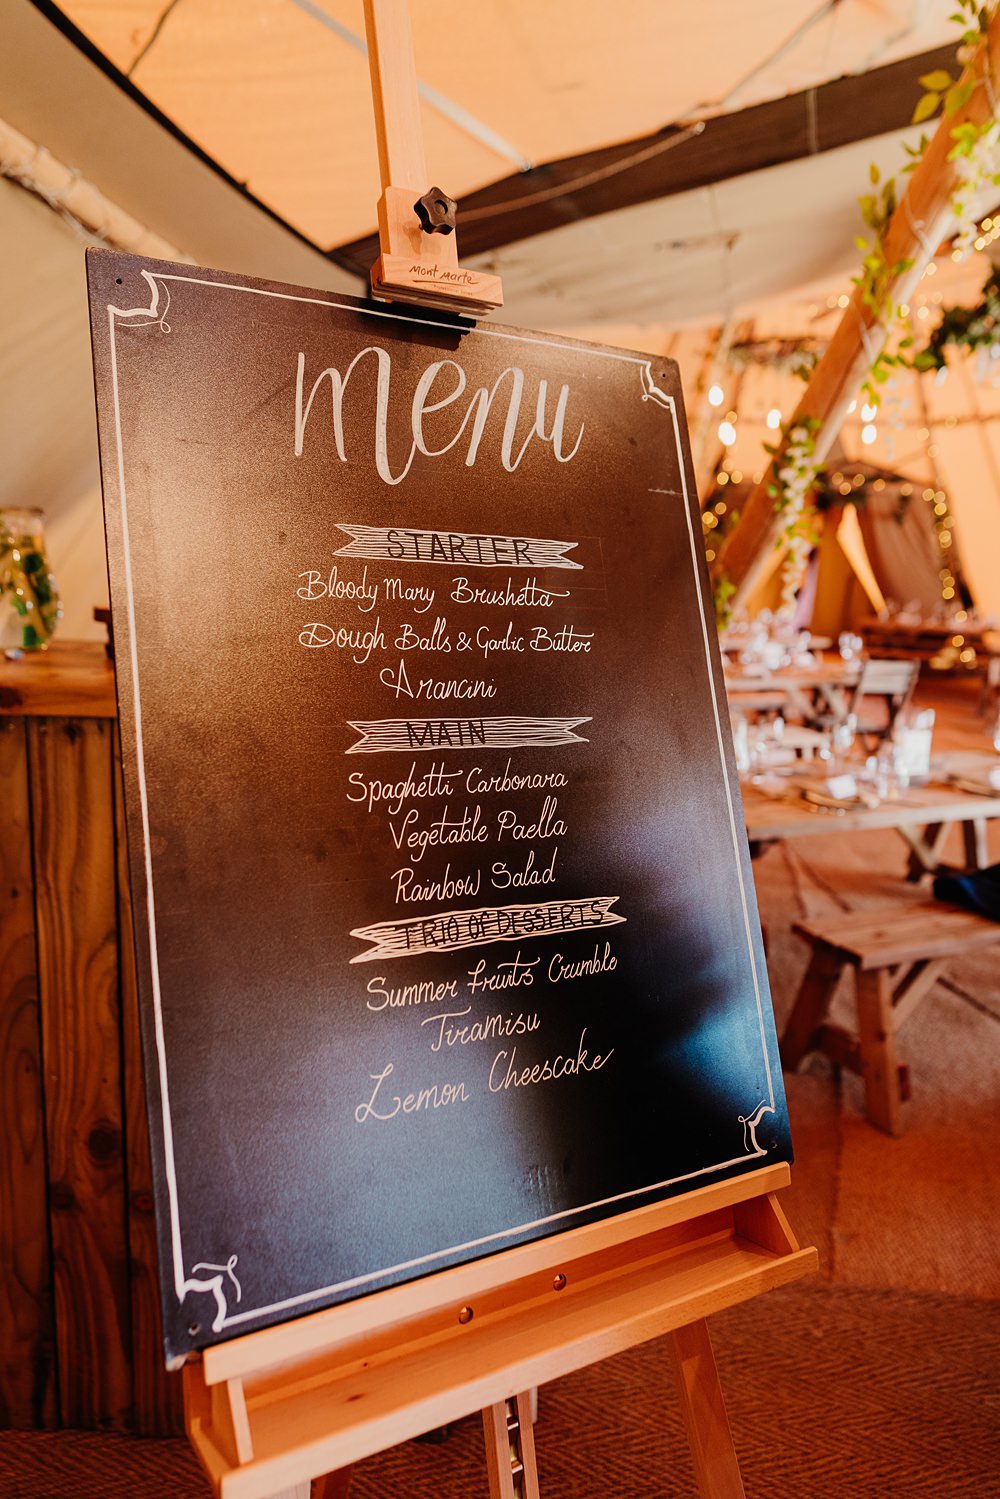 mont marte
menu
STARTER
Bloody Mary Brushetta
Dough Balls & Garlic Butter
Arancini
MAIN
Spaghetti Carbonara
Vegetable Paella
Rainbow Salad
TRIO OF DESSERTS
Summer Fruits Crumble
Tiramisu
Lemon Cheescake